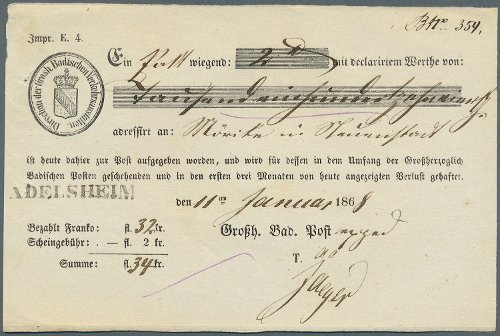 Impr. E. 4.
Nro. 354.
Direction der Grossh. Badischen Verkehrsanstalten
Ein Pak wiegend: 2 ℔ mit declarirtem Werthe von:
Tausend einhundert
adressirt an: Mörike in Neuenstadt
ist heute dahier zur Post aufgegeben worden, und wird für dessen in dem Umfang der Großherzoglich
Badischen Posten geschehenden und in den ersten drei Monaten von heute angezeigten Verlust gehaftet.
ADELSHEIM
den 11ten Januar 1868
Bezahlt Franko: fl. 32 kr.
Scheingebühr: — fl. 2 kr.
Summe: fl. 34 kr.
Großh. Bad. Post exped
T.